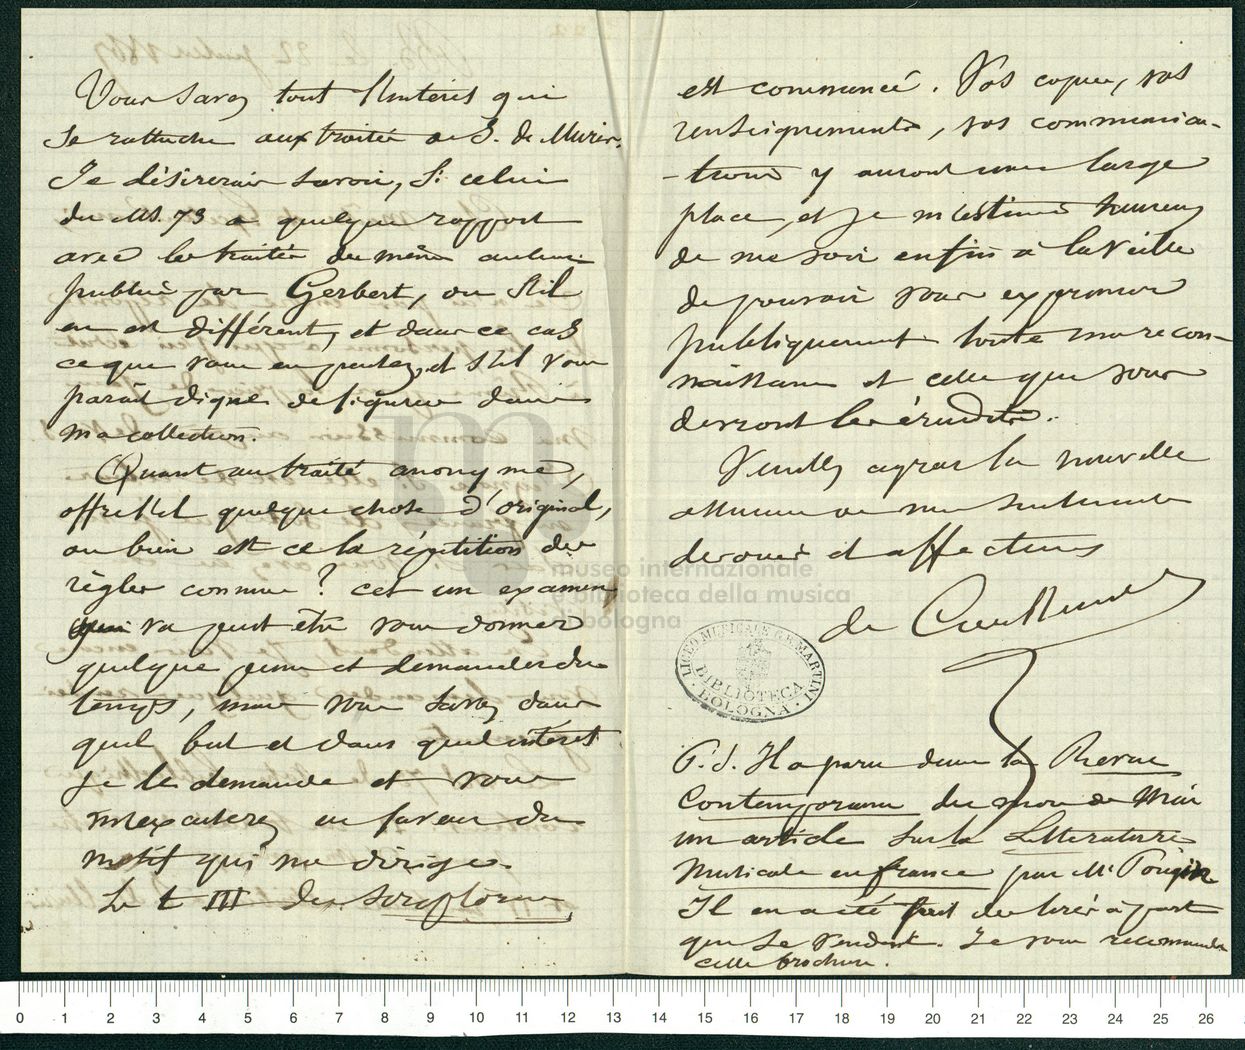 Vous savez tout l'intérêt qui
se rattache aux traités de J. de Muris.
Je désirerais savoir, si celui
du MS. 73 a quelque rapport
avec les traités du même auteur
publié par Gerbert, ou s'il
en est différent, et dans ce cas
ce que vous en pensez, et s'il vous
parait digne de figurer dans
ma collection.
Quant au traité anonyme,
offre t'el quelque chose d'original,
ou bien est ce la répétition des
règles connues ? cet un examen
qui va peut être vous donner
quelque peine et demander du
temps, mais vous savez dans
quel but et dans quel intérêt
je le demande et vous
m'excuserez en faveur du
motif qui me dirige.
Le t III des scriptores
est commencé. Vos copies, vos
renseignements, vos communica-
-tions y auront une large
place, et je m'estime heureux
de me voir enfin à la veille
de pouvoir vous exprimer
publiquement toute ma recon-
naissance et celle que vous
devront les érudits.
Veuillez agréer la nouvelle
assurance de mes sentiments
devoués et affectueux
de Coussemaker
P.S. Il a paru dans la Revue
Contemporaine du mois de Mai
un article sur la Litterature
Musicale en france par Mr Pougin
Il en a été fait des tirés à part
qui se vendent. Je vous recommande
cette brochure.
LICEO MUSICALE G.B. MARTINI
BIBLIOTECA
BOLOGNA
museo internazionale
e biblioteca della musica
di bologna
0 1 2 3 4 5 6 7 8 9 10 11 12 13 14 15 16 17 18 19 20 21 22 23 24 25 26